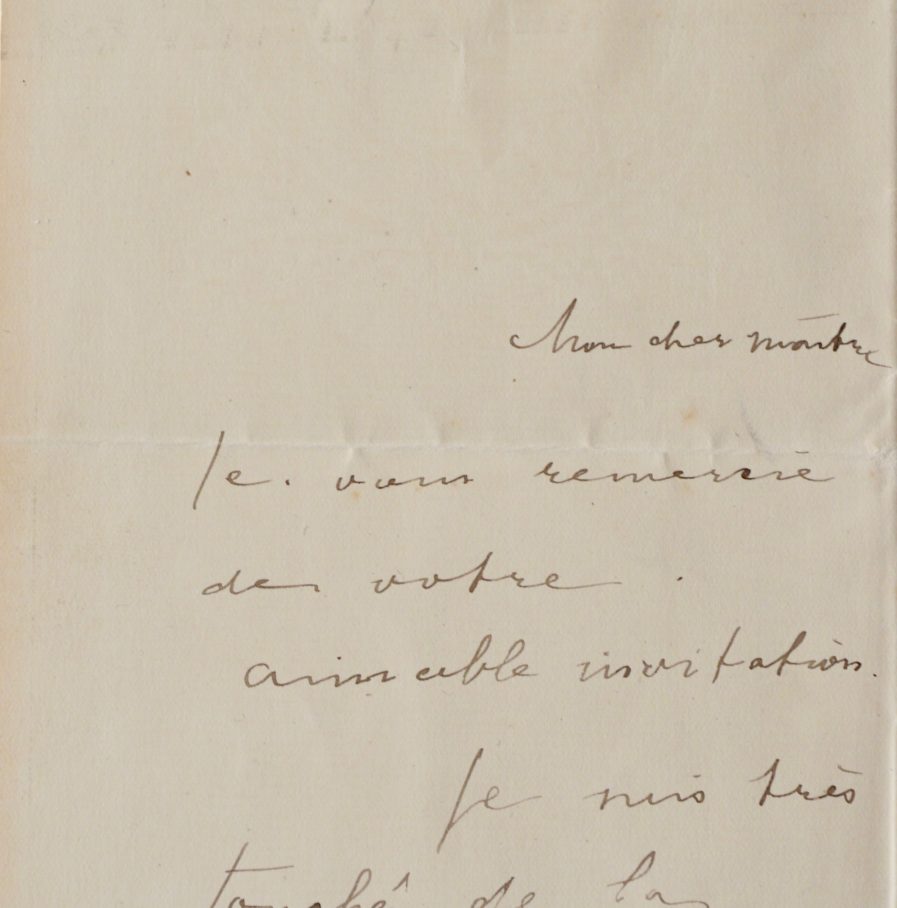 Mon cher maître
Je vous remercie
de votre
aimable invitation.
Je suis très
touché de la